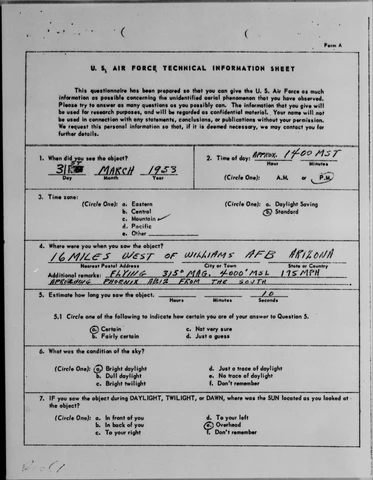 Form A
U. S. AIR FORCE TECHNICAL INFORMATION SHEET
This questionnaire has been prepared so that you can give the U. S. Air Force as much
information as possible concerning the unidentified aerial phenomenon that you have observed.
Please try to answer as many questions as you possibly can. The information that you give will
be used for research purposes, and will be regarded as confidential material. Your name will not
be used in connection with any statements, conclusions, or publications without your permission.
We request this personal information so that, if it is deemed necessary, we may contact you for
further details.
1. When did you see the object?
31ST MARCH 1953
Day Month Year
2. Time of day: APPROX. 1400 MST
Hour Minutes
(Circle One): A.M. or P.M.
3. Time zone:
(Circle One): a. Eastern
b. Central
c. Mountain
d. Pacific
e. Other
(Circle One): a. Daylight Saving
b. Standard
4. Where were you when you saw the object?
16 MILES WEST OF WILLIAMS AFB ARIZONA
Nearest Postal Address City or Town State or Country
Additional remarks: FLYING 315° MAG. 4000' MSL 175 MPH
PHOENIX ARIZ FROM THE SOUTH
5. Estimate how long you saw the object. 10
Hours Minutes Seconds
5.1 Circle one of the following to indicate how certain you are of your answer to Question 5.
a. Certain c. Not very sure
b. Fairly certain d. Just a guess
6. What was the condition of the sky?
(Circle One): a. Bright daylight d. Just a trace of daylight
b. Dull daylight e. No trace of daylight
c. Bright twilight f. Don't remember
7. IF you saw the object during DAYLIGHT, TWILIGHT, or DAWN, where was the SUN located as you looked at
the object?
(Circle One): a. In front of you d. To your left
b. In back of you e. Overhead
c. To your right f. Don't remember